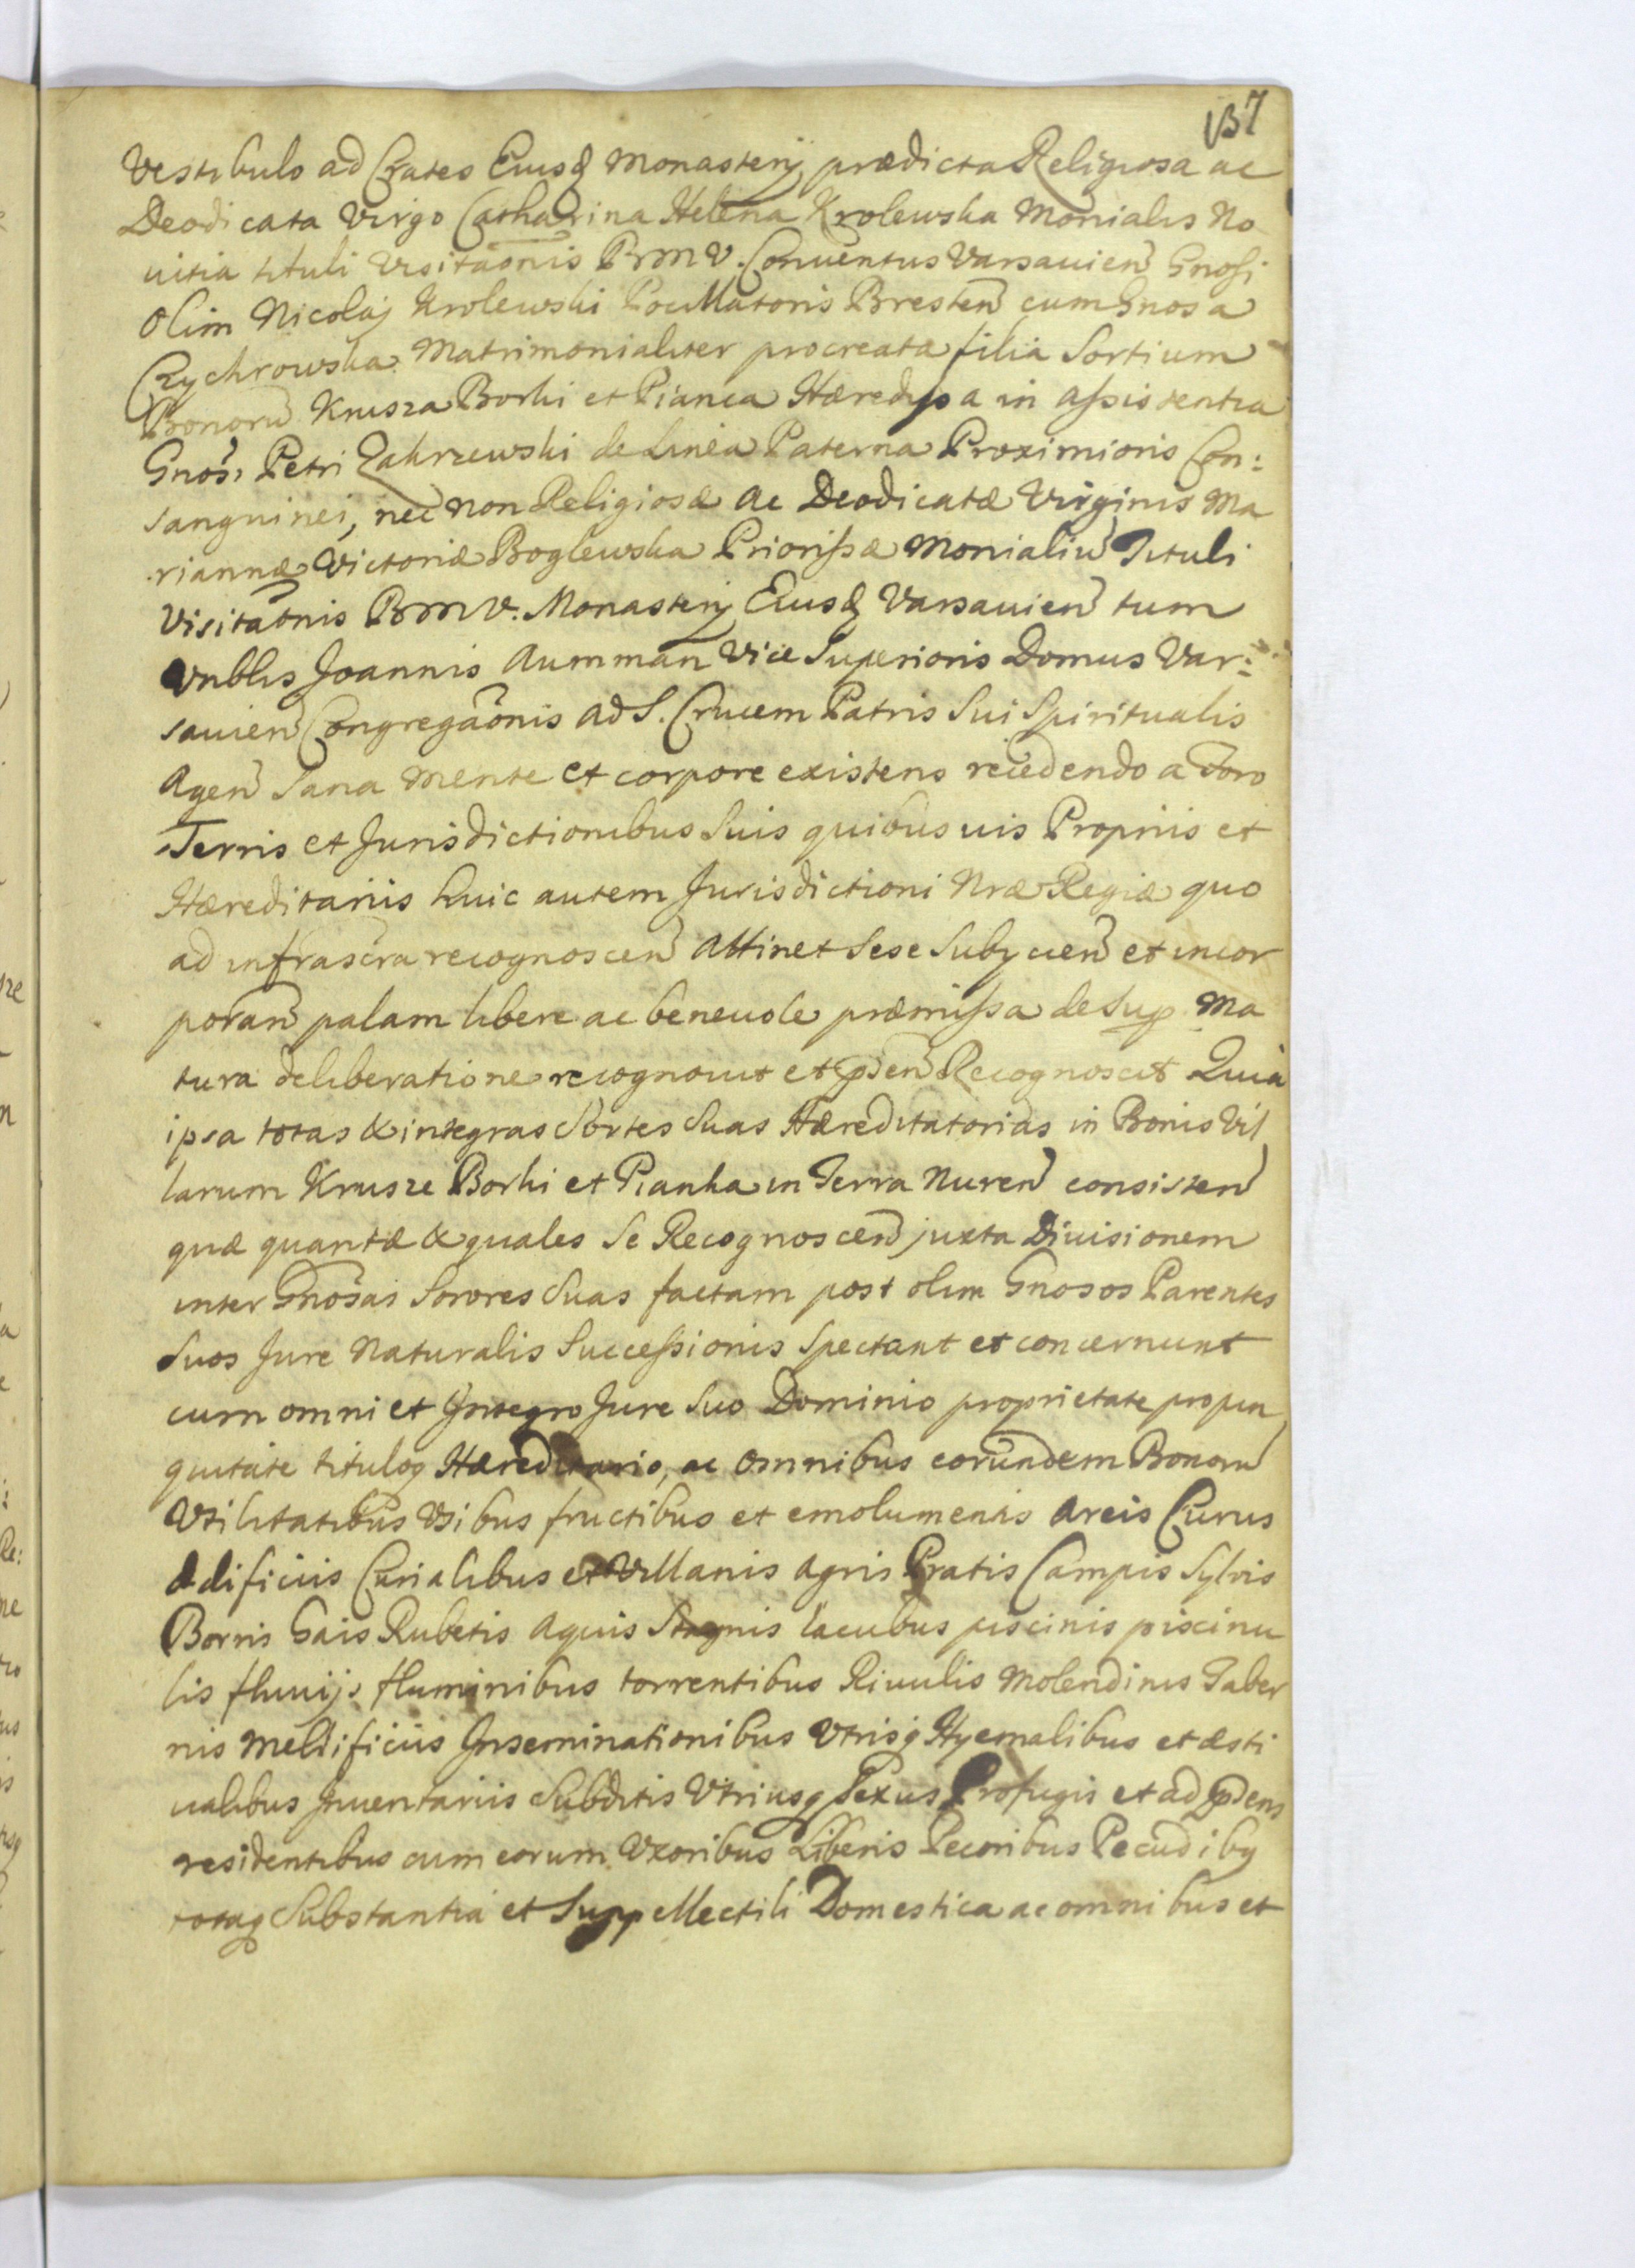 137
Vestibulo ad Crates Eiusq Monasterij prædicta Religiosa ac
Deodicata Virgo Catharina Helena Krolewska Monialis No
uitia tituli Visitaonis BMV. Conuentus Varsauien Gnosi
Olim Nicolaj Krolewski Pocillatoris Bresten cum Gnosa
Czychrowska Matrimonialiter procreata filia Sortium
Bonoru Krusza Borki et Pianca Hæredissa in assistentia
Gnosi Petri Zakrzewski de Linea Paterna Proximioris Con:
sanguinei, nec non Religiosæ ac Deodicatæ Virginis Ma
riannæ Victoriæ Boglewska Priorissæ Monialiu Tituli
Visitatnis BMV. Monasterij Eiusq Varsauien tum
Vnblis Joannis Aumman Vice Superioris Domus Var:
sauien Congregaonis ad S. Crucem Patris Sui Spiritualis
Agen Sana Mente et corpore existens recedendo a Foro
Terris et Jurisdictionibus Suis quibusuis Propriis et
Hæreditariis huic autem Jurisdictioni Nræ Regiæ quo
ad infrascra recognoscen attinet Sese Subijcien et incor
poran palam libere ac beneuole præmissa desup Ma
tura deliberatione recognouit et pden Recognoscit Quia
ipsa totas & integras Sortes Suas Hæreditatorias in Bonis Vil
larum Krusze Borki et Pianka in Terra Nuren consisten
quæ quantæ & quales Se Recognoscen juxta Diuisionem
inter Gnosas Sorores Suas factam post olim Gnosos Parentes
Suos Jure Naturalis Successionis Spectant et concernunt
cum omni et Integro Jure Suo Dominio proprietate propin
quitate tituloq Hæreditario, ac omnibus eorundem Bonoru
Vtilitatibus Vsibus fructibus et emolumentis areis Curiis
Ædificiis Curialibus et Villanis Agris Pratis Campis Sylvis
Borris Gais Rubetis Aquis Stagnis lacubus piscinis piscinu
lis fluuijs fluminibus torrentibus Riuulis Molendinis Taber
nis Mellificiis Inseminationibus Vtrisq Hyemalibus et æsti
ualibus Inuentariis Subditis Vtriusq Sexus Profugis et ad pdens
residentibus cum eorum Vxoribus Liberis Pecoribus Pecudibq
totaq Substantia et Suppellectili Domestica ac omnibus et